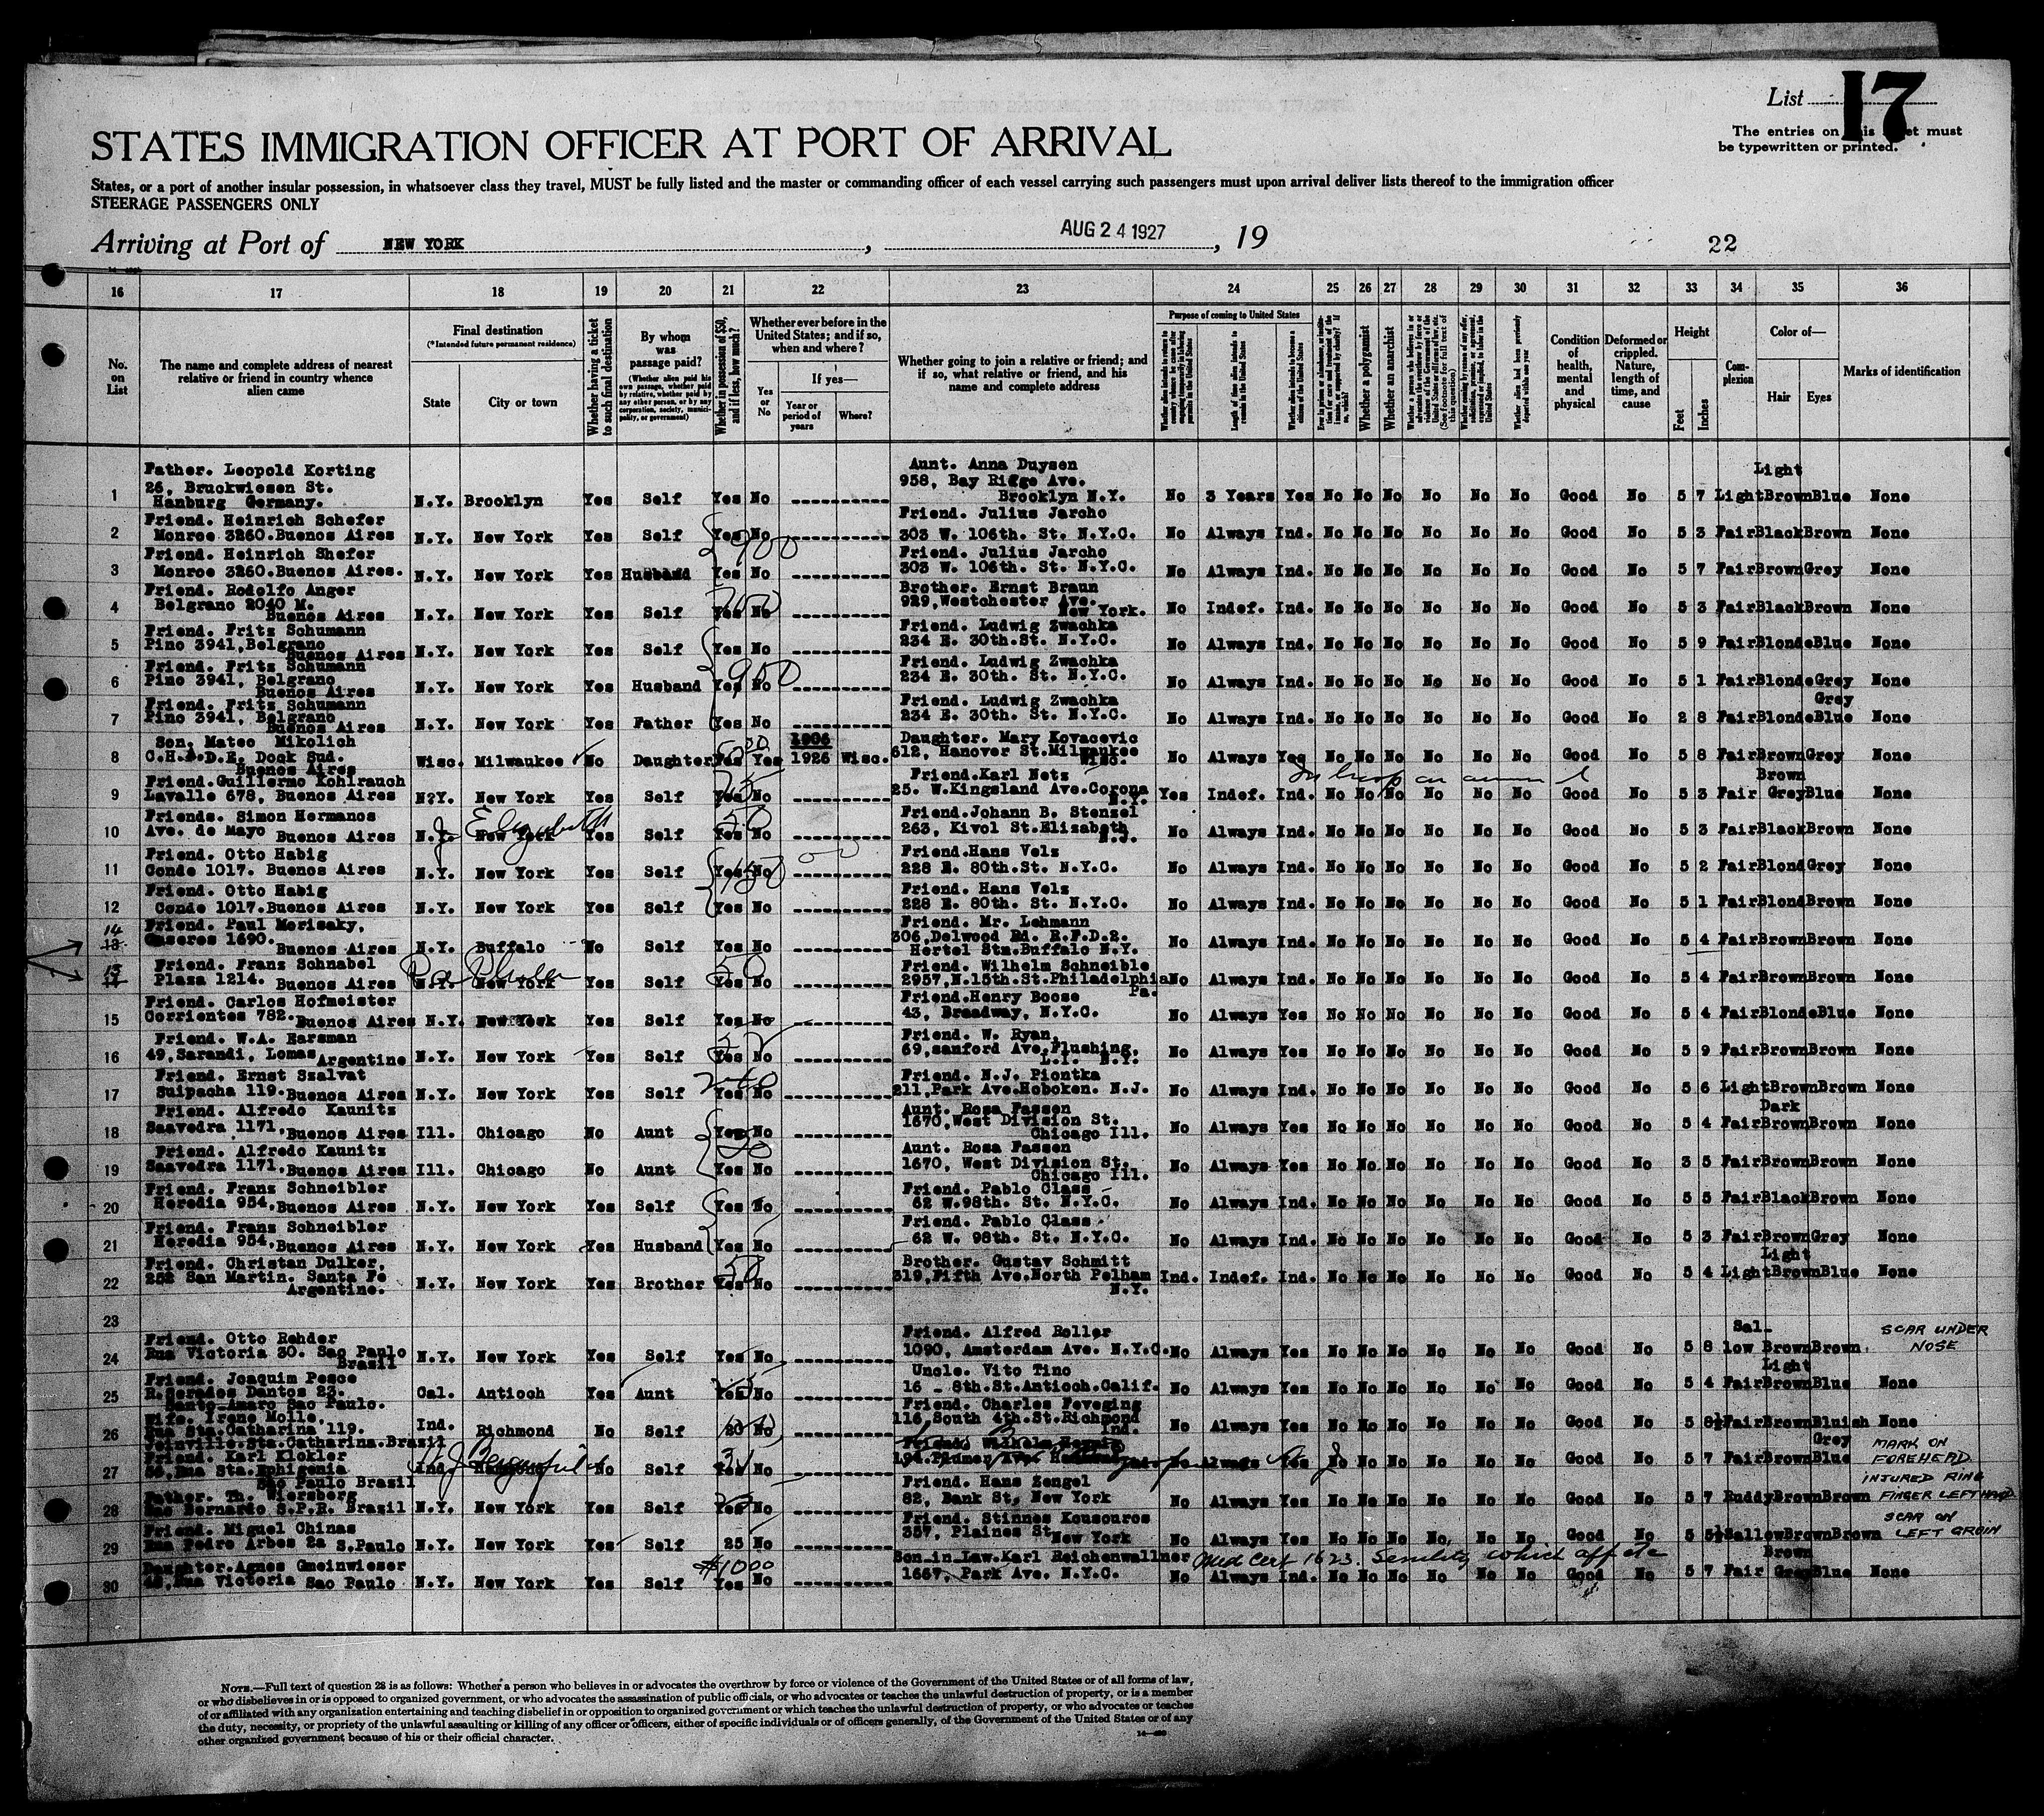 List 17
The entries on this sheet must
be typewritten or printed.
STATES IMMIGRATION OFFICER AT PORT OF ARRIVAL
States, or a port of another insular possession, in whatsoever class they travel, MUST be fully listed and the master or commanding officer of each vessel carrying such passengers must upon arrival deliver lists thereof to the immigration officer
STEERAGE PASSENGERS ONLY
Arriving at Port of NEW YORK, AUG 24 1927, 19
22
16 17 18 19 20 21 22 23 24 25 26 27 28 29 30 31 32 33 34 35 36
No. on List
The name and complete address of nearest relative or friend in country whence alien came
Final destination
(*Intended future permanent residence)
State City or town
Whether having a ticket to such final destination
By whom was passage paid?
(Whether alien paid his own passage, whether paid by relative, whether paid by any other person, or by any corporation, society, municipality, or government)
Whether in possession of $50, and if less, how much?
Whether ever before in the United States; and if so, when and where?
Yes or No
If yes—
Year or period of years
Where?
Whether going to join a relative or friend; and if so, what relative or friend, and his name and complete address
Purpose of coming to United States
Length of time alien intends to remain in the United States
Whether alien intends to become a citizen of the United States
Whether a polygamist
Whether an anarchist
Condition of health, mental and physical
Deformed or crippled. Nature, length of time, and cause
Height
Feet Inches
Complexion
Color of—
Hair Eyes
Marks of identification
1 Father. Leopold Korting
26, Bruckwiesen St.
Hanburg Germany. N.Y. Brooklyn Yes Self Yes No Aunt. Anna Duysen
958, Bay Ridge Ave.
Brooklyn N.Y. No 3 Years Yes No No No No No No Good No 5 7 Light Light Brown Blue None
2 Friend. Heinrich Schefer
Monroe 3260.Buenos Aires N.Y. New York Yes Self Yes No 900 Friend. Julius Jarcho
303 W. 106th. St. N.Y.C. No Always Ind. No No No No No No Good No 5 3 Fair Black Brown None
3 Friend. Heinrich Shefer
Monroe 3260.Buenos Aires. N.Y. New York Yes Husband Yes No Friend. Julius Jarcho
303 W. 106th. St. N.Y.C. No Always Ind. No No No No No No Good No 5 7 Fair Brown Grey None
4 Friend. Rodolfo Anger
Belgrano 2040 M.
Buenos Aires N.Y. New York Yes Self Yes No Brother. Ernst Braun
929,Westchester Ave.
New York. No Indef. Ind. No No No No No No Good No 5 3 Fair Black Brown None
5 Friend. Fritz Schumann
Pino 3941,Belgrano
Buenos Aires N.Y. New York Yes Self Yes No Friend. Ludwig Zwachka
234 E. 30th.St. N.Y.C. No Always Ind. No No No No No No Good No 5 9 Fair Blonde Blue None
6 Friend. Fritz Schumann
Pino 3941, Belgrano
Buenos Aires N.Y. New York Yes Husband Yes No 950 Friend. Ludwig Zwachka
234 E. 30th. St. N.Y.C. No Always Ind. No No No No No No Good No 5 1 Fair Blonde Grey None
7 Friend. Fritz Schumann
Pino 3941, Belgrano
Buenos Aires N.Y. New York Yes Father Yes No Friend. Ludwig Zwachka
234 E. 30th. St. N.Y.C. No Always Ind. No No No No No No Good No 2 8 Fair Blonde Grey Blue None
8 Son. Mateo Mikolich
C.H.A.D.E. Dock Sud.
Buenos Aires Wisc. Milwaukee No Daughter Yes Yes 1906
1926 Wisc. Daughter. Mary Kovacevic
612, Hanover St.Milwaukee
Wisc. No Always Yes No No No No No No Good No 5 8 Fair Brown Grey None
9 Friend.Guillermo Kohlrauch
Lavalle 678, Buenos Aires N?Y. New York Yes Self Yes No Friend.Karl Netz
25. W.Kingsland Ave.Corona
N.Y. Yes Indef. Ind. No No No No No No Good No 5 3 Fair Brown Grey Blue None
10 Friends. Simon Hermanos
Ave. de Mayo Buenos Aires N.J. Elizabeth New York Yes Self Yes No 50 Friend.Johann B. Stenzel
263, Kivol St.Elizabeth
N.J. No Always Ind. No No No No No No Good No 5 3 Fair Black Brown None
11 Friend. Otto Habig
Conde 1017. Buenos Aires N.Y. New York Yes Self Yes No Friend.Hans Velz
228 E. 80th.St. N.Y.C. No Always Ind. No No No No No No Good No 5 2 Fair Blond Grey None
12 Friend. Otto Habig
Conde 1017.Buenos Aires N.Y. New York Yes Self Yes No Friend. Hans Velz
228 E. 80th. St. N.Y.C. No Always Ind. No No No No No No Good No 5 1 Fair Blond Brown None
14 13 Friend. Paul Morisaky,
Caseros 1690.
Buenos Aires N.Y. Buffalo No Self Yes No Friend. Mr. Lehmann
306,Delwood Rd. R.F.D.2.
Hertel Stn.Buffalo N.Y. No Always Ind. No No No No No No Good No 5 4 Fair Brown Brown None
13 14 Friend. Franz Schnabel
Plaza 1214. Buenos Aires N.Y. New York Yes Self Yes No 50 Friend. Wilhelm Schneible
2957,N.15th.St.Philadelphia
Pa. No Always Ind. No No No No No No Good No 5 4 Fair Brown Brown None
15 Friend. Carlos Hofmeister
Corrientes 782.Buenos Aires N.Y. New York Yes Self Yes No Friend.Henry Boose
43, Broadway, N.Y.C. No Always Yes No No No No No No Good No 5 4 Fair Blonde Blue None
16 Friend. W.A. Harsman
49,Sarandi, Lomas Argentine N.Y. New York Yes Self Yes Friend. W. Ryan,
69,sanford Ave,Flushing,
L.I. N.Y. No Always Yes No No No No No No Good No 5 9 Fair Brown Brown None
17 Friend. Ernst Szalvat
Suipacha 119.Buenos Aires N.Y. New York Yes Self Yes No Friend. N.J. Piontka
211,Park Ave.Hoboken. N.J. No Always Ind. No No No No No No Good No 5 6 Light Brown Brown None
18 Friend. Alfredo Kaunitz
Saavedra 1171.Buenos Aires Ill. Chicago No Aunt Yes No Aunt. Rosa Fassen
1670,West Division St.
Chicago Ill. No Always Yes No No No No No No Good No 5 4 Fair Dark Brown Brown None
19 Friend. Alfredo Kaunitz
Saavedra 1171.Buenos Aires Ill. Chicago No Aunt Yes No Aunt. Rosa Fassen
1670, West Division St.
Chicago Ill. No Always Yes No No No No No No Good No 3 5 Fair Brown Brown None
20 Friend. Franz Schneibler
Heredia 954.Buenos Aires N.Y. New York Yes Self Yes No Friend. Pablo Class
62 W.98th. St. N.Y.C. No Always Ind. No No No No No No Good No 5 5 Fair Black Brown None
21 Friend. Franz Schneibler
Heredia 954.Buenos Aires N.Y. New York Yes Husband Yes No Friend. Pablo Class
62 W. 98th. St. N.Y.C. No Always Ind. No No No No No No Good No 5 3 Fair Brown Grey None
22 Friend. Christan Dulker,
252 San Martin. Santa Fe
Argentine. N.Y. New York Yes Brother Yes No 50 Brother. Gustav Schmitt
319,Fifth Ave.North Pelham
N.Y. Ind. Indef. Ind. No No No No No No Good No 5 4 Light Light Brown Blue None
23
24 Friend. Otto Rehder
Rua Victoria 30. Sao Paulo
Brasil N.Y. New York Yes Self Yes No Friend. Alfred Roller
1090, Amsterdam Ave. N.Y.C. No Always Yes No No No No No No Good No 5 8 Sal-low Brown Brown. SCAR UNDER NOSE
25 Friend. Joaquim Pesce
R.Serades Dantos 23.
Santo Amaro Sao Paulo. Cal. Antioch Yes Aunt Yes No Uncle. Vito Tino
16 - 8th.St.Antioch.Calif. No Always Yes No No No No No No Good No 5 4 Fair Light Brown Blue None
26 Wife. Irene Molle.
Rua Sta.Catharina 119.
Joinville.Sta.Catharina.Brasil Ind. Richmond No Self 20 No Friend. Charles Feveging
116,South 4th.St.Richmond
Ind. No Always Yes No No No No No No Good No 5 8½ Fair Brown Bluish None
27 Friend. Karl Klokler
Rua Sta.Ephigenia
Sao Paulo Brasil Ind. No Self Yes No Always Yes No No No No No Good No 5 7 Fair Brown Grey Blue MARK ON FOREHEAD
28 Father. Th. Wiersberg
Sao Bernardo S.P.R. Brazil N.Y. New York Yes Self No Friend. Hans Zengel
82, Bank St, New York No Always Yes No No No No No No Good No 5 7 Ruddy Brown Brown INJURED RING FINGER LEFT HAND
29 Friend. Miguel Chinas
Rua Pedro Arbes 2a S.Paulo N.Y. New York Yes Self 25 No Friend. Stinnes Kousouros
357, Plaines St
New York No Always Yes No No No No No No Good No 5 5½ Sallow Brown Brown SCAR ON LEFT GROIN
30 Daughter.Agnes Gmeinwieser
Rua Victoria Sao Paulo N.Y. New York Yes Self $1000 Yes No Son-in-Law.Karl Reichenwallner
1667, Park Ave. N.Y.C. Med Cert 1623. Senility which affects
No Always Ind. No No No No No No Good No 5 7 Fair Brown Grey Blue None
NOTE.—Full text of question 28 is as follows: Whether a person who believes in or advocates the overthrow by force or violence of the Government of the United States or of all forms of law,
or who disbelieves in or is opposed to organized government, or who advocates the assassination of public officials, or who advocates or teaches the unlawful destruction of property, or is a member
of or affiliated with any organization entertaining and teaching disbelief in or opposition to organized government or which teaches the unlawful destruction of property, or who advocates or teaches
the duty, necessity, or propriety of the unlawful assaulting or killing of any officer or officers, either of specific individuals or of officers generally, of the Government of the United States or of any
other organized government because of his or their official character.